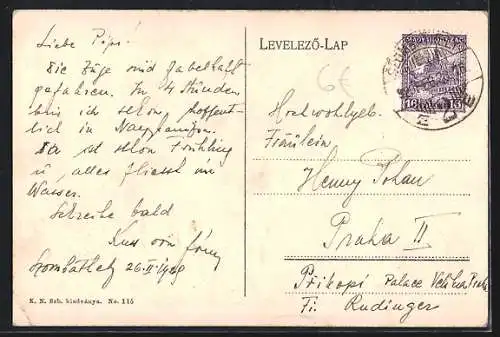 Liebe Pipi!
Die Züge sind fabelhaft
gefahren. In 4 Stunden
bin ich schon hoffent-
lich in
Da ist schon Frühling
u. alles fliesst im
Wasser.
Schreibe bald
Kuss von
Szombathely 26.II.1929
K. N. Szb. kiadványa. No. 115
LEVELEZŐ-LAP
6€
16 16
Hochwohlgeb.
Fräulein
Henny Pohan
Praha II
Přikopi Palace
Fi: Rudinger